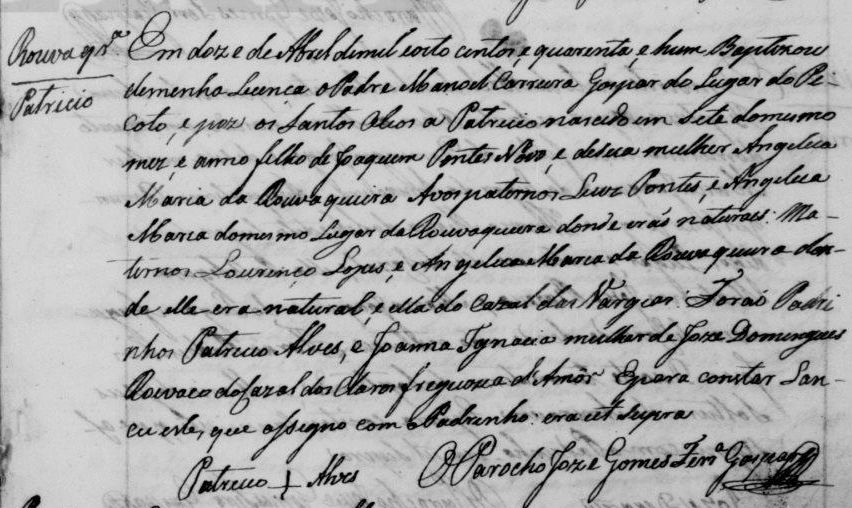 Rouvaqrª
Patricio
Em doze de Abril de mil eoito centos, e quarenta, e hum, Baptizou
de menha Licença o Padre Manoel Carreira Gaspar do Lugar do Pe-
coto, e poz os Santos Oleos a Patricio nascido em sete do mesmo
mez, e anno filho de Joaquim Pontes Novo, e de sua mulher Angelica
Maria da Rouvaqueira Avos paternos Luiz Pontes, e Angelica
Maria do mesmo Lugar da Rouvaqueira donde erão naturaes: Ma-
ternos Lourenço Lopes, e Angelica Maria da Rouvaqueira don-
de elle era natural, e ella do Cazal das Vargias: Forão Padri
nhos Patricio Alves, e Joanna Ignacia mulher de Joze Domingues
Rovaco do Cazal dos Claros freguezia d'Amôr Epara constar Lan-
cu este, que assegno com o Padrinho: era ut Supra
Patricio + Alves O Parocho Joze Gomes Ferª Gaspar